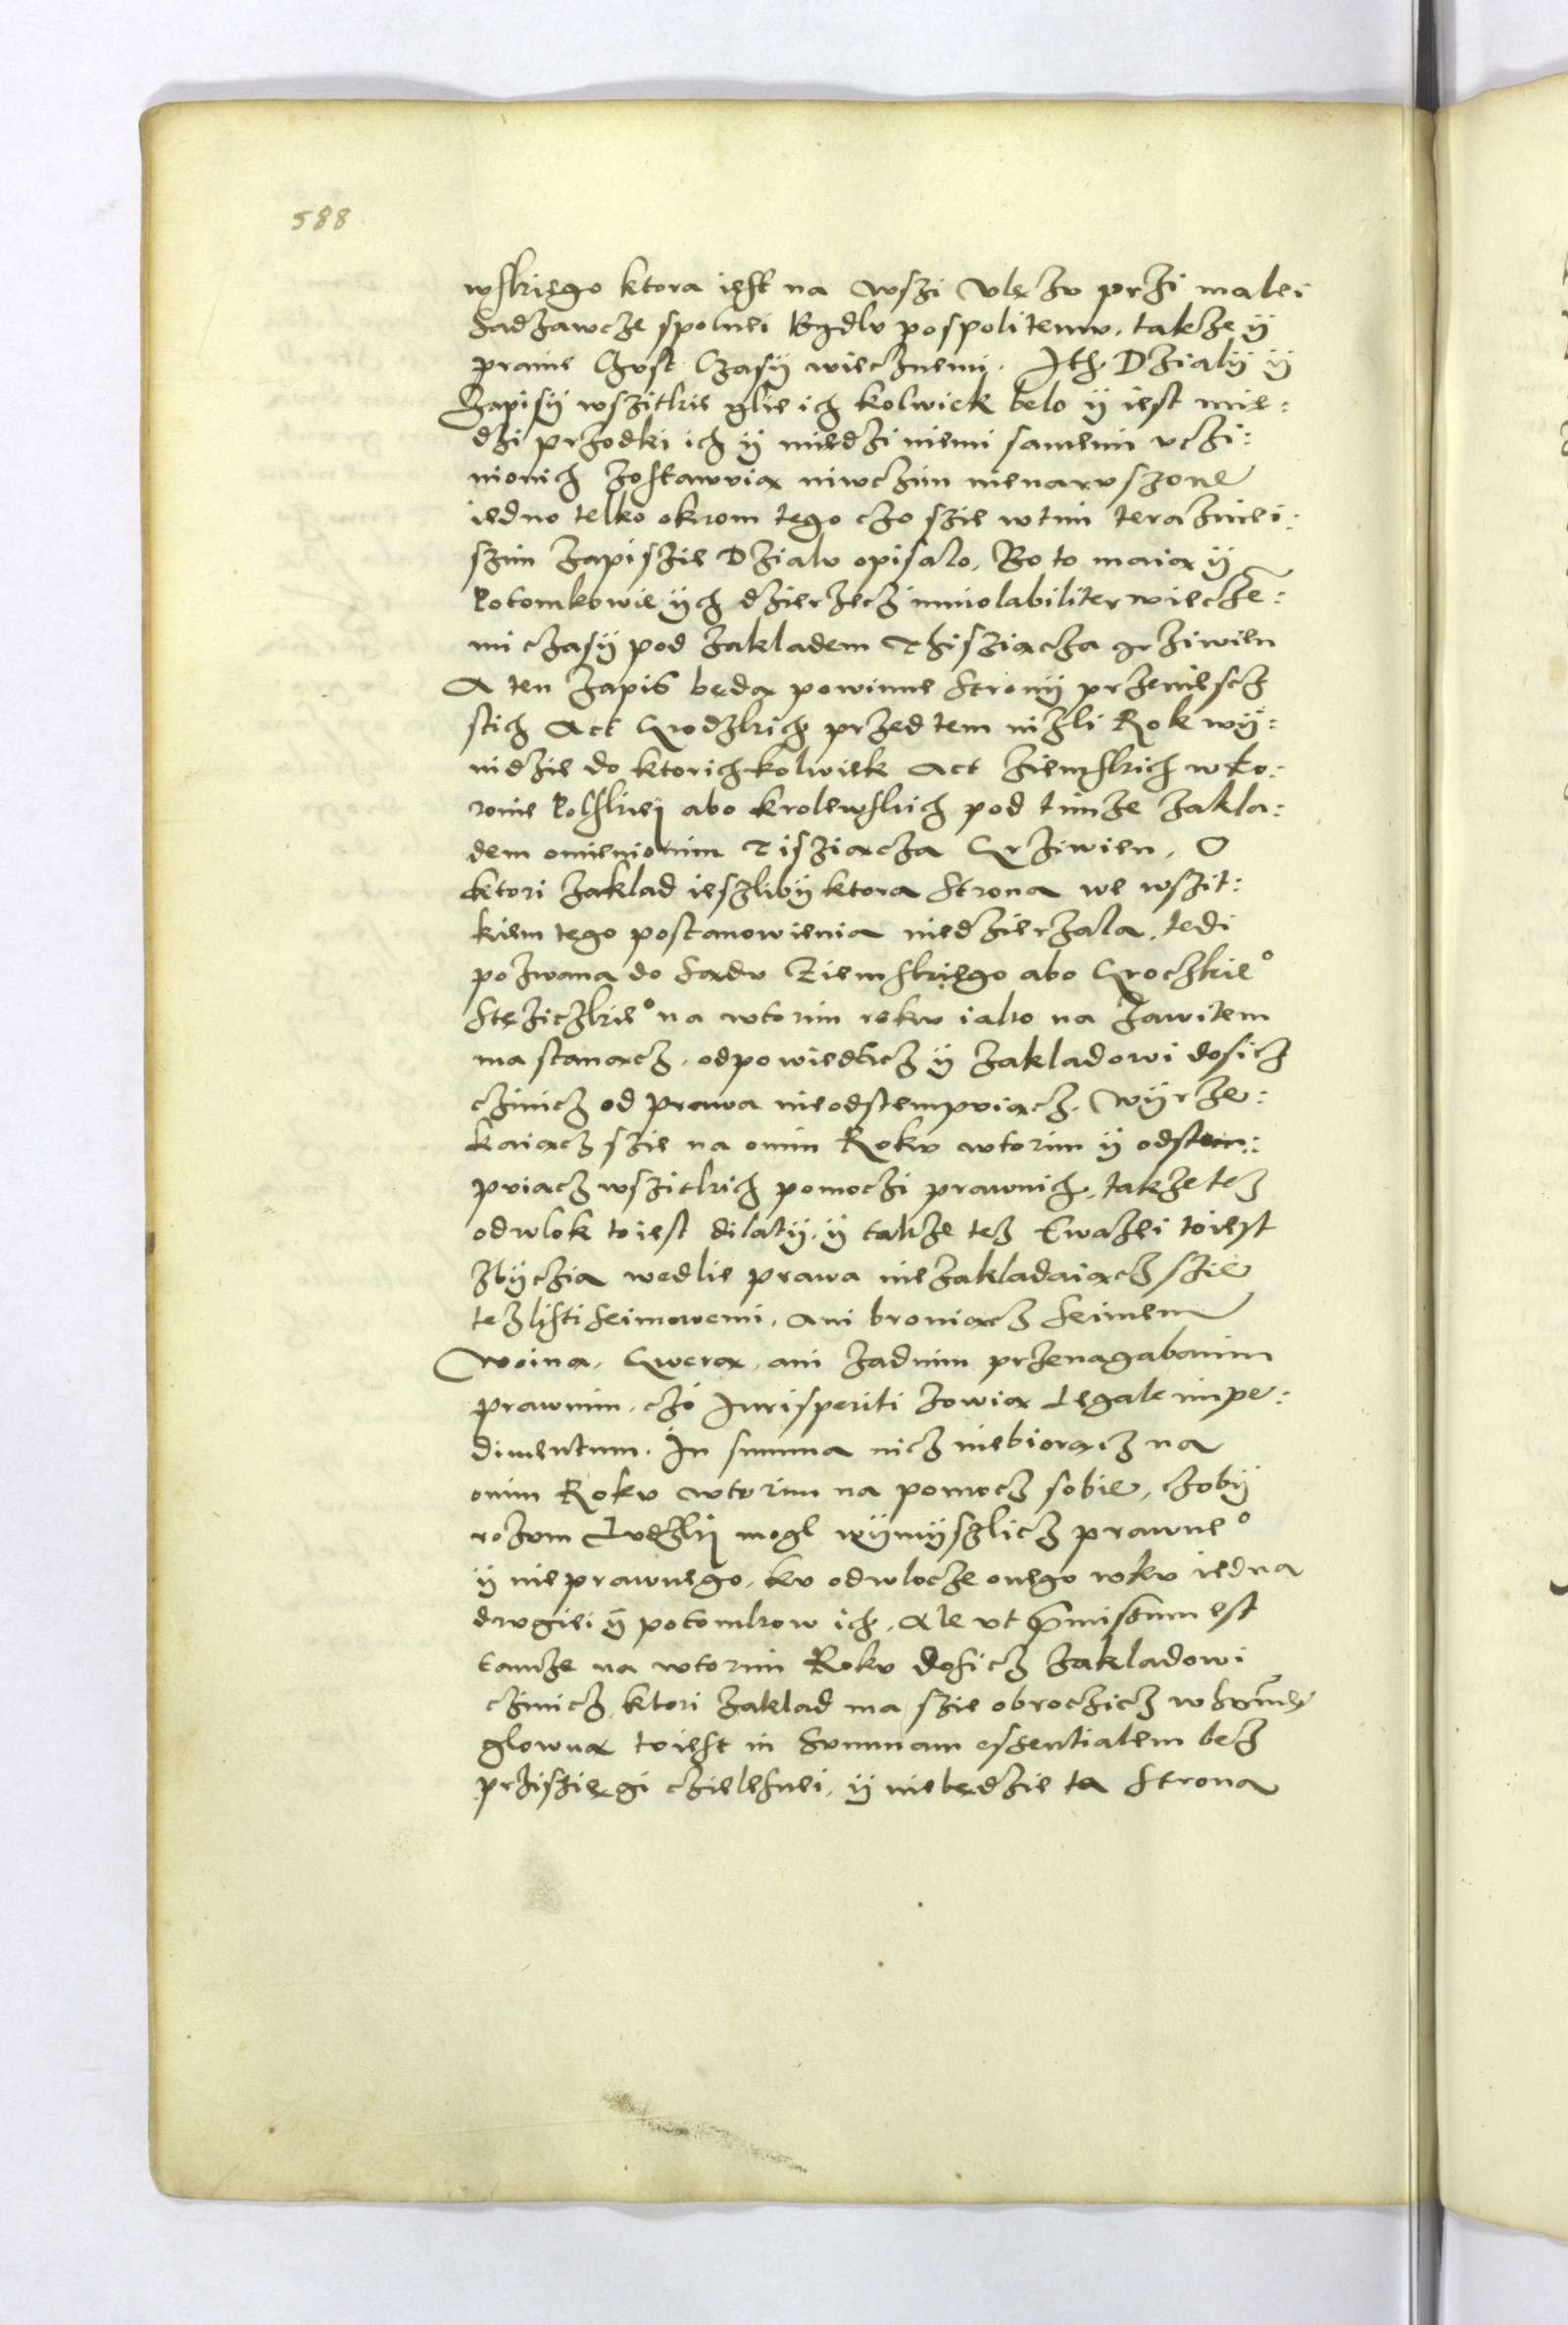 588
wskiego ktora iest na wszi Vlęzu przi malei
Sadzawcze spolnei Bydlu pospolitemu, takze ÿ
pranie Chust Czasÿ wiecznemi. Ith. Dzialÿ ÿ
Zapisÿ wszitkie glie ich kolwiek belo ÿ iest mie:
dzi przodki ich ÿ miedzi niemi samemi vczi:
nionich zostawuią niwczim nienaruszone
iedno telko okrom tego czo szie wtim terazniei:
szim zapiszie Dzialu opisalo, Bo to maią ÿ
Potomkowie ÿch dzierzecz inuiolabiliter wiecze:
mi czasÿ pod zakladem Thisziącza grziwien
A ten zapis będą powinne Stronÿ przeniescz
stich Act Grodzkich przed tem nizli Rok wÿ:
nidzie do ktorichkolwiek Act ziemskich wko:
ronie Polskiej abo krolewskich pod timze zakla:
dem omienionim Tisziącza Grziwien, O
ktori zaklad ieszlibÿ ktora Strona we wszit:
kiem tego postanowienia niedzierzala, tedi
pozwana do Sądu Ziemskiego abo Groczkie°
Stęziczkie° na wtorim roku iako na zawitem
ma stanącz, odpowiedacz ÿ zakladowi dosicz
czinicz od prawa nieodstempuiącz, wÿrze:
kaiącz szie na onim Roku wtorim ÿ odstem:
puiącz wszitkich pomoczi prawnich, takze tez
odwlok to iest dilatÿ, ÿ takze tez Ewazei toiest
zbÿczia wedlie prawa niezakladaiącz szie
tez listi Seimowemi, ani broniącz Seimem
woina, Gwerą, ani zadnim przenagabanim
prawnim, czo Iurisperiti zowią Legale impe:
dimentum. In summa nicz niebiorącz na
onim Roku wtorim na pomocz sobie, czobÿ
rozum Ludzkij mogl wÿmÿszlicz prawne°
ÿ nieprawnego, ku odwlocze onego roku iedna
drugiei ÿ potomkow ich, Ale vt p̄missum est
tamze na wtorim Roku dosicz zakladowi
czinicz, ktori zaklad ma szie obroczicz w Sum̄ę
glowną toiest in Summam essentialem bez
prziszięgi czielesnei, ÿ niebędzie ta Strona